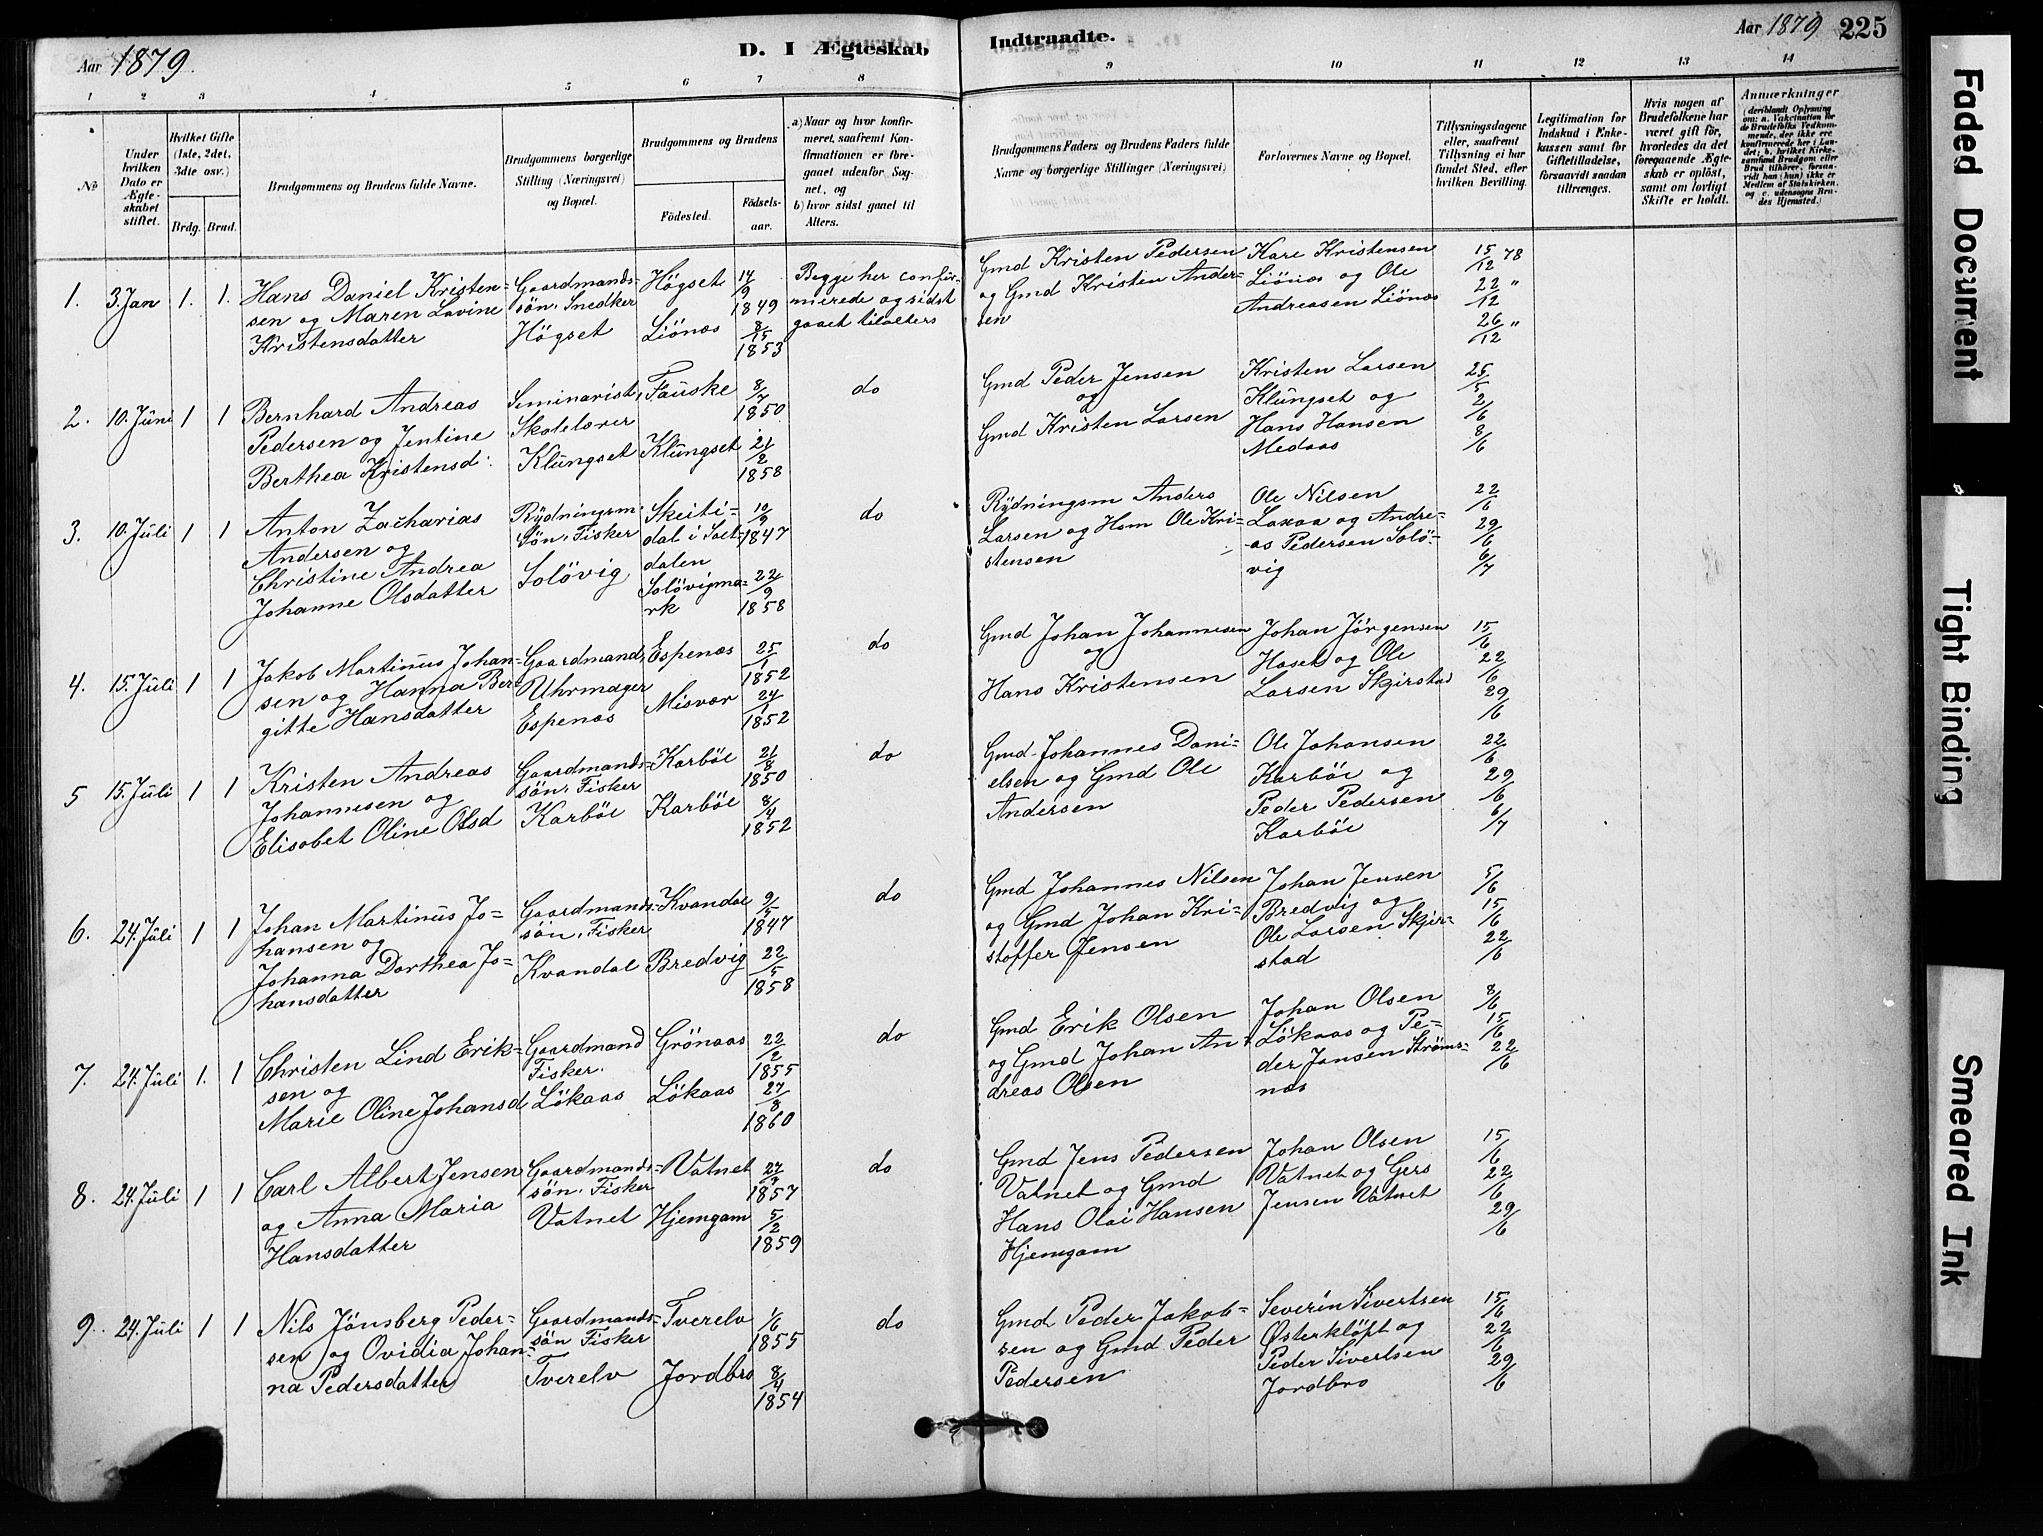 Aar 1879
D. I Ægteskab
Indtraadte.
Aar 1879 225
1 2 3 4 5 6 7 8 9 10 11 12 13 14
No
Under hvilken Dato er Ægteskabet stiftet.
Hvilket Gifte (1ste, 2det, 3die osv.)
Brdg. Brud.
Brudgommens og Brudens fulde Navne.
Brudgommens borgerlige Stilling (Næringsvei) og Bopæl.
Brudgommens og Brudens
Födested.
Födsels-aar.
a) Naar og hvor konfirmeret, saafremt Konfirmationen er foregaaet udenfor Sognet, og
b) hvor sidst gaaet til Alters.
Brudgommens Faders og Brudens Faders fulde Navne og borgerlige Stillinger (Næringsvei)
Forlovernes Navne og Bopæl.
Tillysningsdagene eller, saafremt Tillysning ei har fundet Sted, efter hvilken Bevilling.
Legitimation for Indskud i Enkekassen samt for Giftetilladelse, forsaavidt saadan tiltrænges.
Hvis nogen af Brudefolkene har været gift för, hvorledes da det foregaaende Ægteskab er oplöst, samt om lovligt Skifte er holdt.
Anmærkninger
(deriblandt Oplysning om: a. Vakcination for de Brudefolks Vedkommende, der ikke ere konfirmerede her i Landet; b. hvilket Kirkesamfund Brudgom eller Brud tilhörer, forsaavidt han (hun) ikke er Medlem af Statskirken, og c. udensogns Brudes Hjemsted.)
1. 3. Jan 1. 1.
Hans Daniel Kristen-
sen og Maren Lovine
Kristensdatter
Gaardmands-
sön. Snedker
Högset
Högset 14/9 1849
Liönæs 8/15 1853
Begge her confir-
merede og sidst
gaaet tilalters
Gmd Kristen Pedersen
og Gmd Kristen Ander-
sen
Kare Kristensen
Liönæs og Ole
Andreasen Liönæs
15/12 78
22/12 "
26/12 "
2. 10. Juni 1 1
Bernhard Andreas
Pedersen og Jentine
Berthea Kristensd:
Seminarist,
Skolelærer
Klungset
Fauske 8/7 1850
Klungset 21/2 1858
do
Gmd Peder Jensen
og
Gmd Kristen Larsen
Kristen Larsen
Klungset og
Hans Hansen
Medaas
25/5
2/6
8/6
3. 10. Juli 1 1
Anton Zacharias
Andersen og
Christine Andrea
Johanne Olsdatter
Rydningsm.
sön. Fisker
Solövig
Skeiti-
dal i Salt-
dalen
10/9 1847
Solövigma-
rk
22/9 1858
do
Rydningsm Anders
Larsen og Hsm Ole Kri-
stensen
Ole Nilsen
Laxaa og Andre-
as Pedersen Solö-
vig
22/6
29/6
6/7
4. 15. Juli 1 1
Jakob Martinus Johan-
sen og Hanna Ber-
gitte Hansdatter
Gaardmand,
Uhrmager
Espenæs
Espenæs 25/1 1852
Misvær 24/1 1852
do
Gmd Johan Johannesen
og
Hans Kristensen
Johan Jörgensen
Haset og Ole
Larsen Skjerstad
15/6
22/6
29/6
5 15. Juli 1 1
Kristen Andreas
Johannesen og
Elisabet Oline Olsd
Gaardmands-
sön. Fisker
Karböe
Karböe 21/8 1850
Karböe 8/4 1852
do
Gmd. Johannes Dani-
elsen og Gmd Ole
Andersen
Ole Johansen
Karböe og
Peder Pedersen
Karböe
22/6
29/6
6/7
6. 24. Juli 1 1
Johan Martinus Jo-
hansen og
Johanna Dorthea Jo-
hansdatter
Gaardmands-
sön. Fisker
Kvandal
Kvandal 9/5 1847
Bredvig 22/5 1858
do
Gmd Johannes Nilsen
og Gmd Johan Kri-
stoffer Jensen
Johan Jensen
Bredvig og
Ole Larsen Skjer-
stad
5/6
15/6
22/6
7. 24. Juli 1. 1
Christen Lind Erik-
sen og
Marie Oline Johansd
Gaardmand
Fisker.
Lökaas
Grönaas 22/2 1855
Lökaas 27/8 1860
do
Gmd Erik Olsen
og Gmd Johan An-
dreas Olsen
Johan Olsen
Lökaas og Pe-
der Jansen Ströms-
næs
8/6
15/6
22/6
8. 24. Juli 1 1
Carl Albert Jensen
og Anna Maria
Hansdatter
Gaardmands-
sön. Fisker
Vatnet
Vatnet 27/7 1857
Hjemgam 5/2 1859
do
Gmd Jens Pedersen
Vatnet og Gmd
Hans Olai Hansen
Hjemgam
Johan Olsen
Vatnet og Gers
Jensen Vatnet
15/6
22/6
29/6
9. 24. Juli 1 1
Nils Jönsberg Peder-
sen og Ovidia Johan-
na Pedersdatter
Gaardmands-
sön Fisker
Tverelv
Tverelv 1/6 1855
Jordbro 8/4 1854
do
Gmd Peder Jakob-
sen og Gmd Peder
Pedersen
Severin Sivertsen
Østerklöft og
Peder Sivertsen
Jordbro
15/6
22/6
29/6
Faded Document
Tight Binding
Smeared Ink